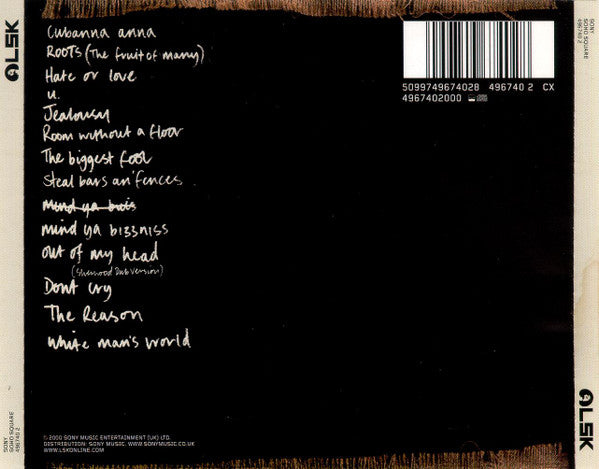 LSK
SONY
SOHO SQUARE
496740 2
Cubanna anna
ROOTS (The fruit of many)
Hate or love
U.
Jealousy
Room without a floor
The biggest fool
Steal bars an' fences
Mind ya buis
mind ya bizzniss
Out of my head
(Sherwood Dub Version)
Dont cry
The Reason
White man's World
5099749674028 496740 2 CX
4967402000
© 2000 SONY MUSIC ENTERTAINMENT (UK) LTD.
DISTRIBUTION: SONY MUSIC. WWW.SONYMUSIC.CO.UK
WWW.LSKONLINE.COM
SONY
SOHO SQUARE
496740 2
LSK